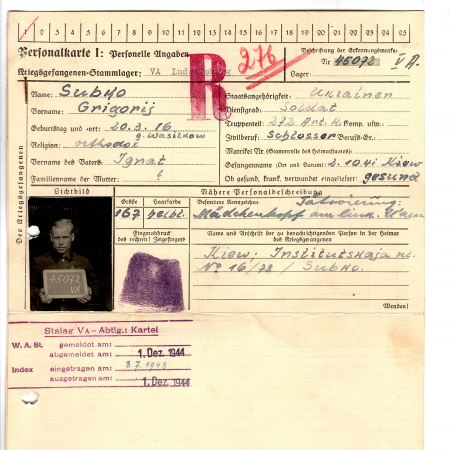 1 2 3 4 5 6 7 8 9 10 11 12 13 14 15 16 17 18 19 20 21 22 23 24 25
Personalkarte I: Personelle Angaben
Kriegsgefangenen-Stammlager: VA Ludwigsburg
R
276
Beschriftung der Erkennungsmarke
Nr. 45072 V A.
Lager:
Des Kriegsgefangenen
Name: Subko
Vorname: Grigorij
Geburtstag und -ort: 20.3.16
g. Wassilkow
Religion: orthodox
Vorname des Vaters: Ignat
Familienname der Mutter: !
Staatsangehörigkeit: Ukrainen
Dienstgrad: Soldat
Truppenteil: 272 Art. R. Komp. usw.:
Zivilberuf: Schlosser Berufs-Gr.:
Matrikel Nr. (Stammrolle des Heimatstaates):
Gefangennahme (Ort und Datum): 2.10.41 Kiew
Ob gesund, krank, verwundet eingeliefert: gesund
Lichtbild
45072
VA
Nähere Personalbeschreibung
Größe
167
Haarfarbe
Besondere Kennzeichen: Tätowierung:
Mädchenkopf am link.
Fingerabdruck
des rechten! Zeigefinger!
Name und Anschrift der zu benachrichtigenden Person in der Heimat
des Kriegsgefangenen
Kiew; Institutskaja
No 16/28 / Subko.
Wenden!
Stalag VA – Abtlg.: Kartei
W. A. St. gemeldet am:
abgemeldet am: 1. Dez. 1944
Index eingetragen am: 3 7. 1943
ausgetragen am: 1. Dez. 1944